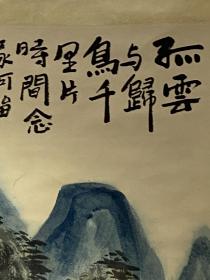 孤雲
与歸
鳥千
里片
時間念
家何